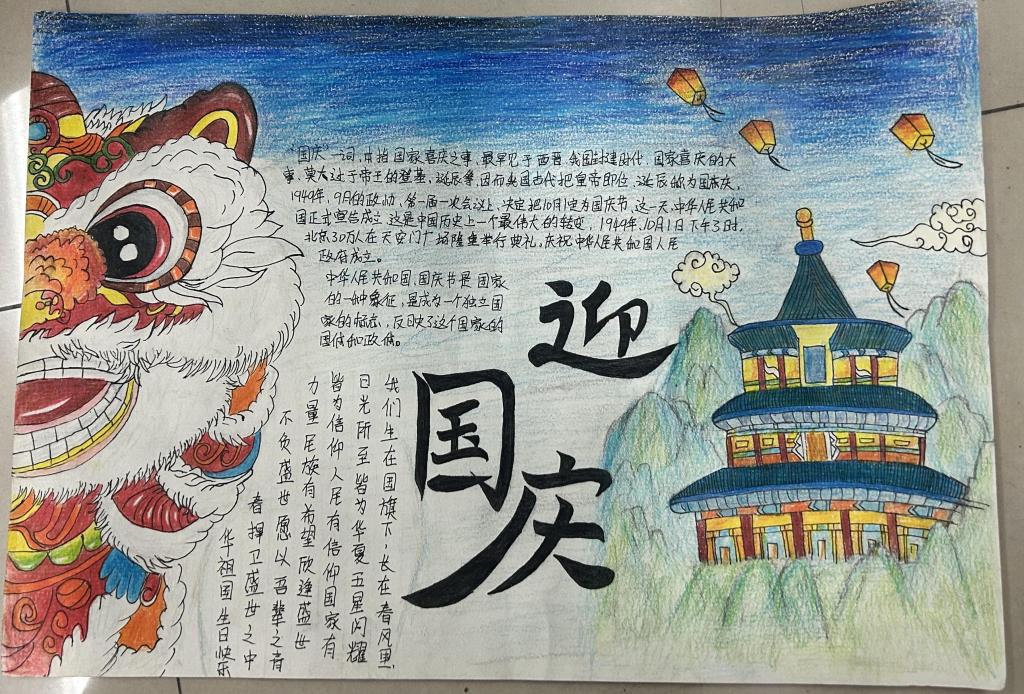 “国庆”一词,本指国家喜庆之事,最早见于西晋.我国封建时代、国家喜庆的大
事,莫大过于帝王的登基,诞辰等,因而我国古代把皇帝即位、诞辰称为国庆,
1949年,9月的政协,第一届一次会议上,决定把10月1定为国庆节,这一天,中华人民共和
国正式宣告成立,这是中国历史上一个最伟大的转变,1949年,10月1日下午3时,
北京30万人在天安门广场隆重举行典礼,庆祝中华人民共和国人民
政府成立。
中华人民共和国,国庆节是国家
的一种象征,是成为一个独立国
家的标志,反映了这个国家的
国体和政体。
迎
国
庆
我们生在国旗下,长在春风里
日光所至皆为华夏五星闪耀
皆为信仰人民有信仰国家有
力量民族有希望欣逢盛世
不负盛世愿以吾辈之青
春捍卫盛世之中
华祖国生日快乐